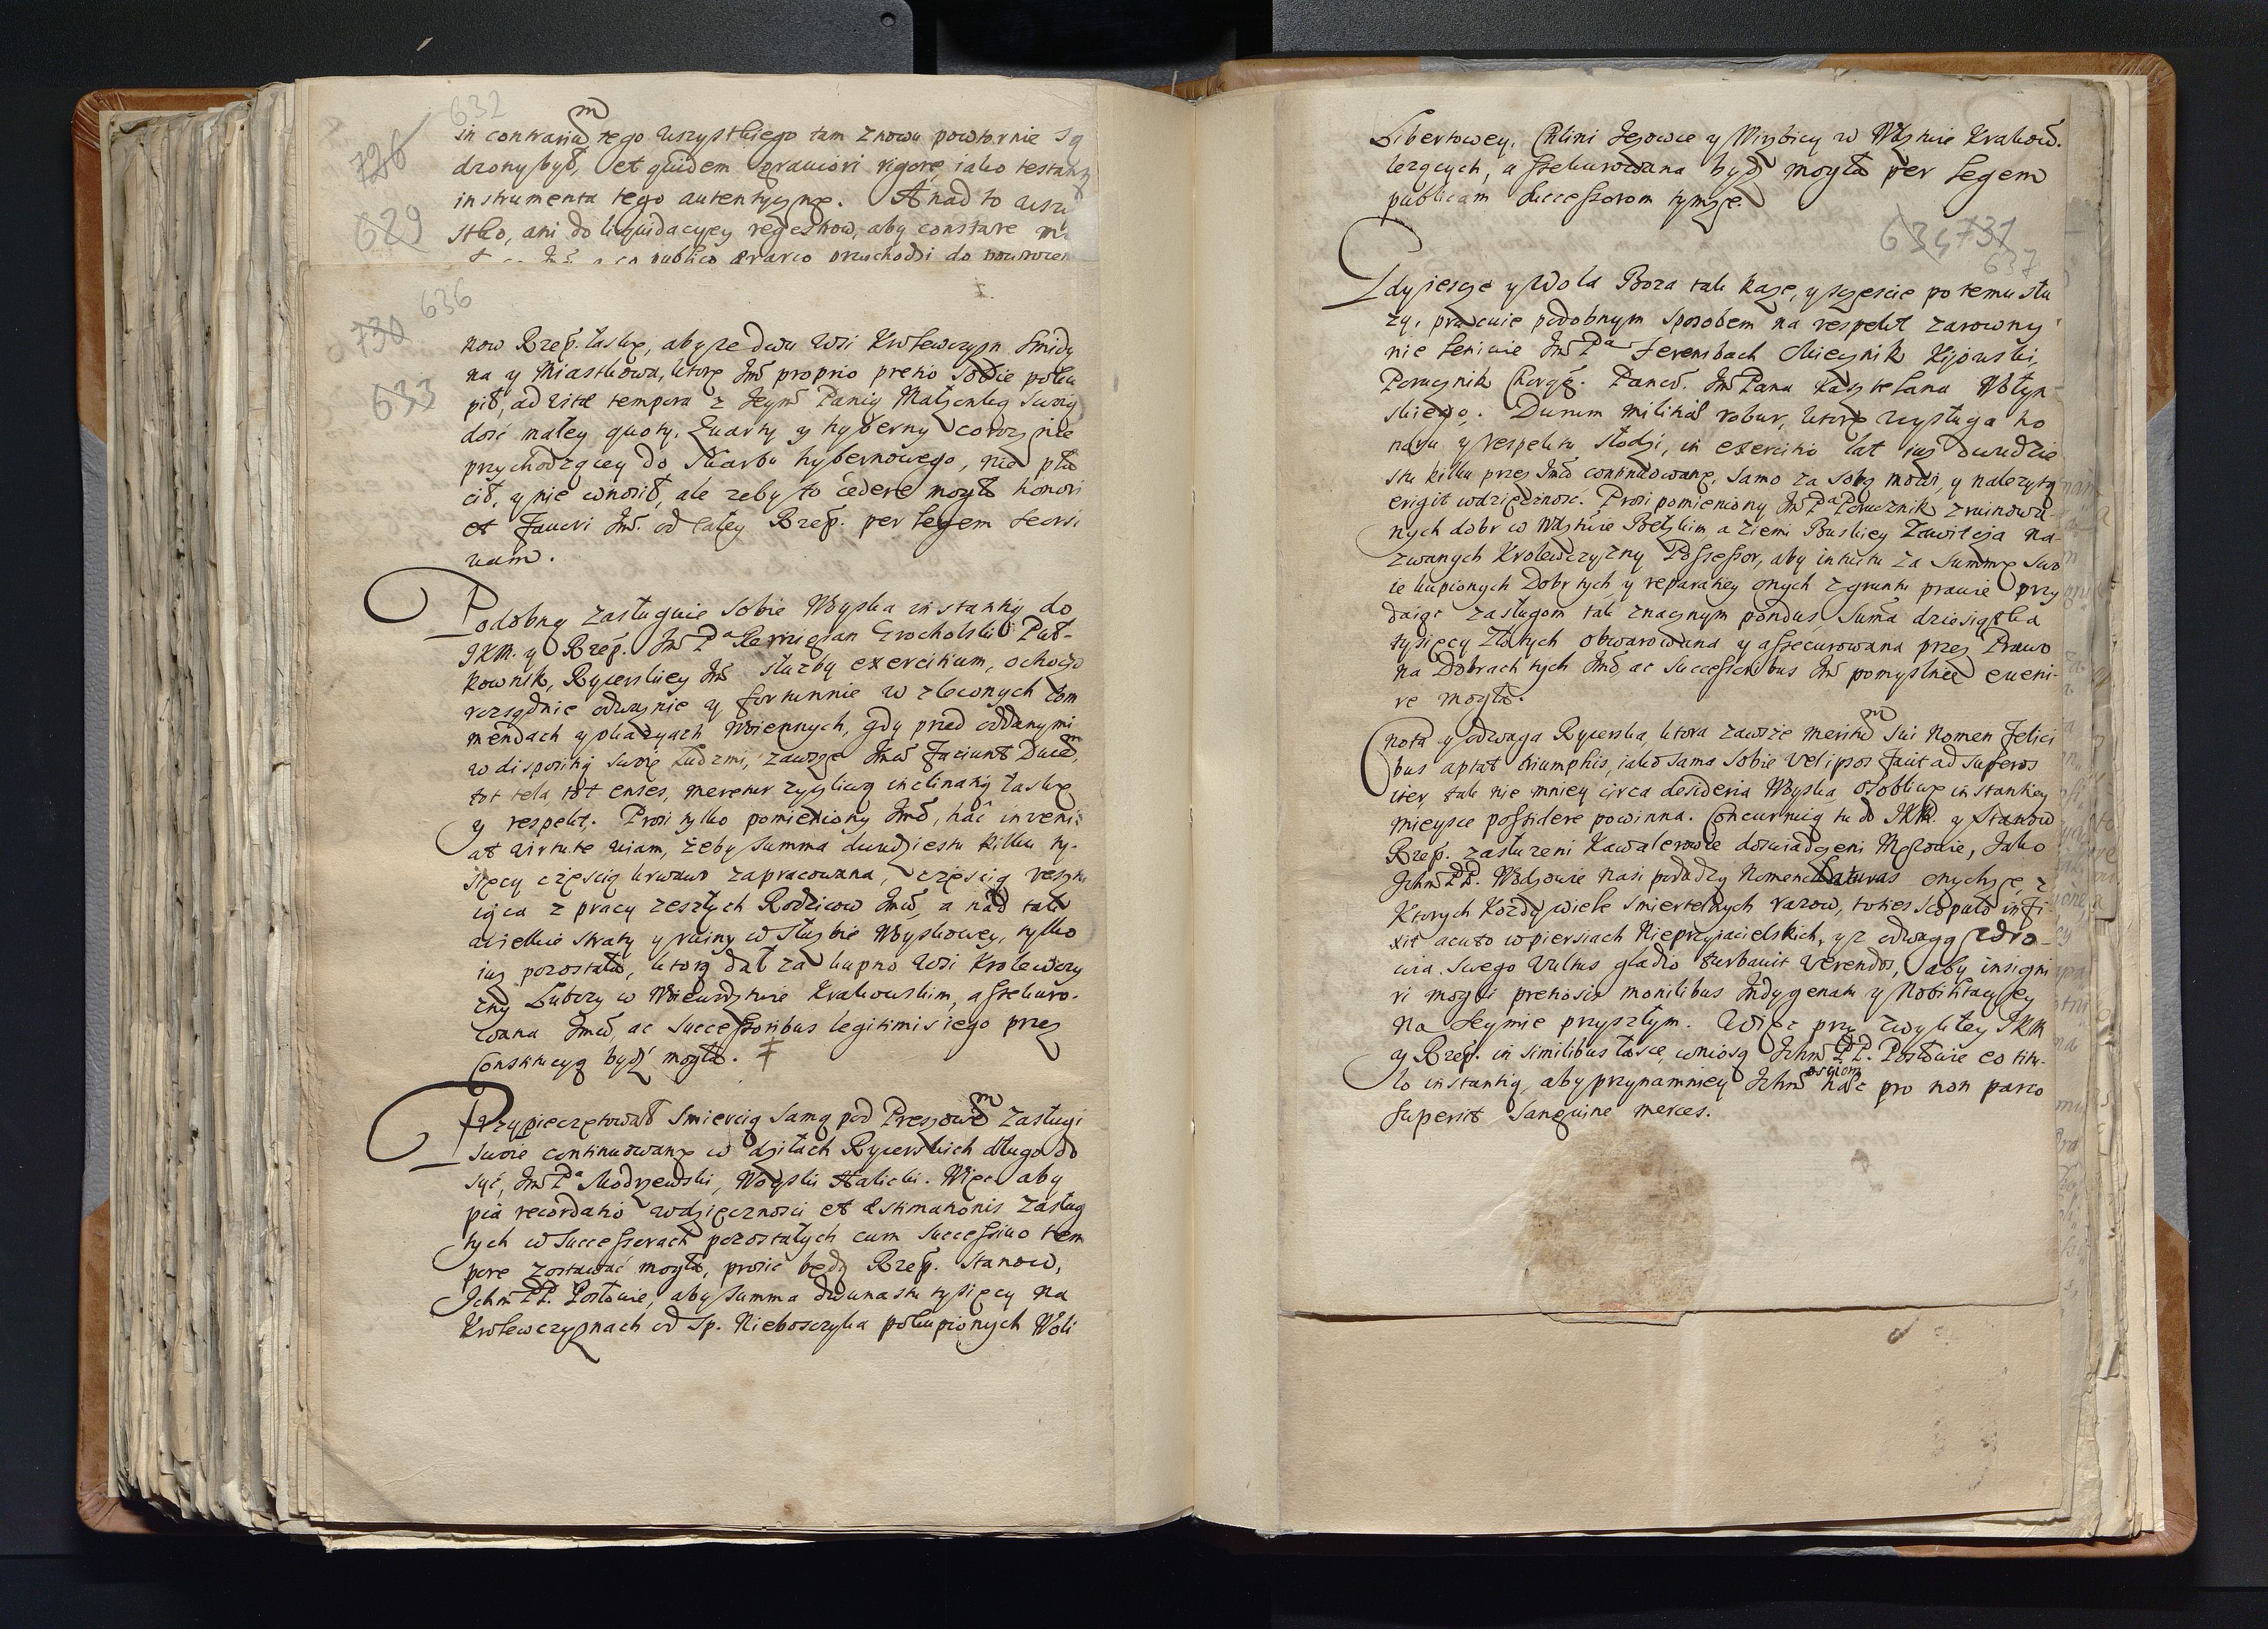 632
in contrariu[m] tego wszystkiego tam znowu powtornie są
728
dzony był, et quidem graviori rigore, iako testant
instrumenta tego autentyczne. A nad to wszy
629
stko, ani do liquidacyey regestrow, aby constare
publico aerario przychodzi do
636
730
now Rzep. łaskę, aby ze dwu Wsi Krolewczyzn Smidy
na y Miastkowa, ktore Jmć proprio pretio sobie poku
633
pił, ad vitae tempora z Jeym. Panią Małzonką swoią
dość małey quoty, Kwarty y hyberny corocznie
przychodzącey do Skarbu hybernowego, nie pła
cił, y nie wnosił, ale zeby to cedere mogło honori
et favori Jmć. od całey Rzep. per legem
Podobną zasługuie sobie Woyska instantią do
JKM. y Rzep. Jmć Pᵃ Remigian Grocholski Puł-
kownik, Rycerskiey Jmć służby exercitium, ochoczo
rozsądnie odważnie y fortunnie w zleconych kom
mendach y okazyach Woiennych, gdy przed oddanymi
w disposition swoię Ludzmi, zawsze Jmci faciunt Duce[m],
tot tela, tot enses, meretur życzliwą inclinatią łaskę
y respekt. Prosi tylko pomieniony Jmć, hac inveni-
at virtute viam, żeby summa dwudziestu kilku ty-
sięcy częścią krwawo zapracowana, częścią
iąca z pracy zeszłych Rodzicow Jmć, a nad tak
wielkie straty y ruiny w służbie Woyskowey, tylko
iuż pozostała, ktorą dał za kupno Wsi Krolewczy
zny Lubczy w Woiewdztwie Krakowskim, assekuro-
wana Jmci, ac Successoribus legitimis iego przez
Constitucyą bydź mogła. ‡
Przypieczętował śmiercią samą pod Preszowe[m] zasługi
swoie continuowane w dziełach Rycerskich długo do
syć, Jmć Pᵃ Modrzewski, Woyski Halicki. Więc aby
pia recordatio wdzięczności et aestimationis zasług
tych w Successorach pozostałych cum successivo tem
pore zostawać mogła, prosić będą Rzep. Stanow,
Jchm PP. Posłowie, aby summa dwunastu tysięcy na
Krolewczyznach od Sp. Nieboszczyka pokupionych Woli
Libertowey, Chlini Jezowce y Wirzbicy w Wdztwie Krakow.
lezących, assekurowana bydź mogła per legem
publicam Successorom tymze.
634 731
637
Gdy iescze y Wola Boza tak kaze, y sczęscie po temu słu
zy, pracuie podobnym sposobem na respekt zarowny
nie leniwie Jmć Pᵃ Ferensbach Miecznik Kijowski,
Porucznik Chorąg. Pancer. Jmć Pana Kasztelana Wołyn-
skiego. Durum militiae robur, ktore wysługa ho
noru y respektu słodzi, in exercitio lat iuz dwudzie
stu kilku przez Jmci continuowane, samo za sobą mowi, y nalezytą
erigit wdzięczność. Prosi pomieniony Jmć Pᵃ Porucznik zruinowa-
nych dobr w Wdztwie Bełzkim a ziemi Buskiey Zawidcza na-
zwanych Krolewczyzny Possessor, aby intuitu za Summę swo
ie kupionych Dobr tych y reparatiey onych z gruntu prawie przy
daiąc zasługom tak znacznym pondus, Suma dziesiątka
tysięcy złotych obwarowana y assecurowana przez Prawo
na Dobrach tych Jmć, ac Successoribus Jmć pomyslnie eveni-
re mogła.
Cnota y odwaga Rycerska ktora zawsze meritu[m] sui nomen felici
bus aptat triumphis, iako sama sobie vel ipsos facit ad superos
iter, tak nie mniey circa desideria Woyska, osobliwe instantiey
mieysce possidere powinna. Concurruią tu do JKM. y Stanow
Rzep. zasłuzeni Kawalerowie doswiadczeni Męzowie, Jako
Jchm PP. Wodzowie nasi podadzą Nomenclaturas onychze, z
ktorych kozdy wiele smiertelnych razow, toties scopulo infi-
xit acuto w piersiach Nieprzyiacielskich, y z odwagą zdro-
wia swego vultus gladio turbavit verendos, aby insigni
ri mogli pretiosis monilibus Indygenatu y Nobilitacyey
na Seymie przyszłym. Więc przy zwykłey JKM
y Rzep. in similibus łasce, wniosą Jchm PP. Posłowie eo titu-
lo instantią, aby przynamniey Jchmosciom haec pro non parco
supersit sanguine merces.